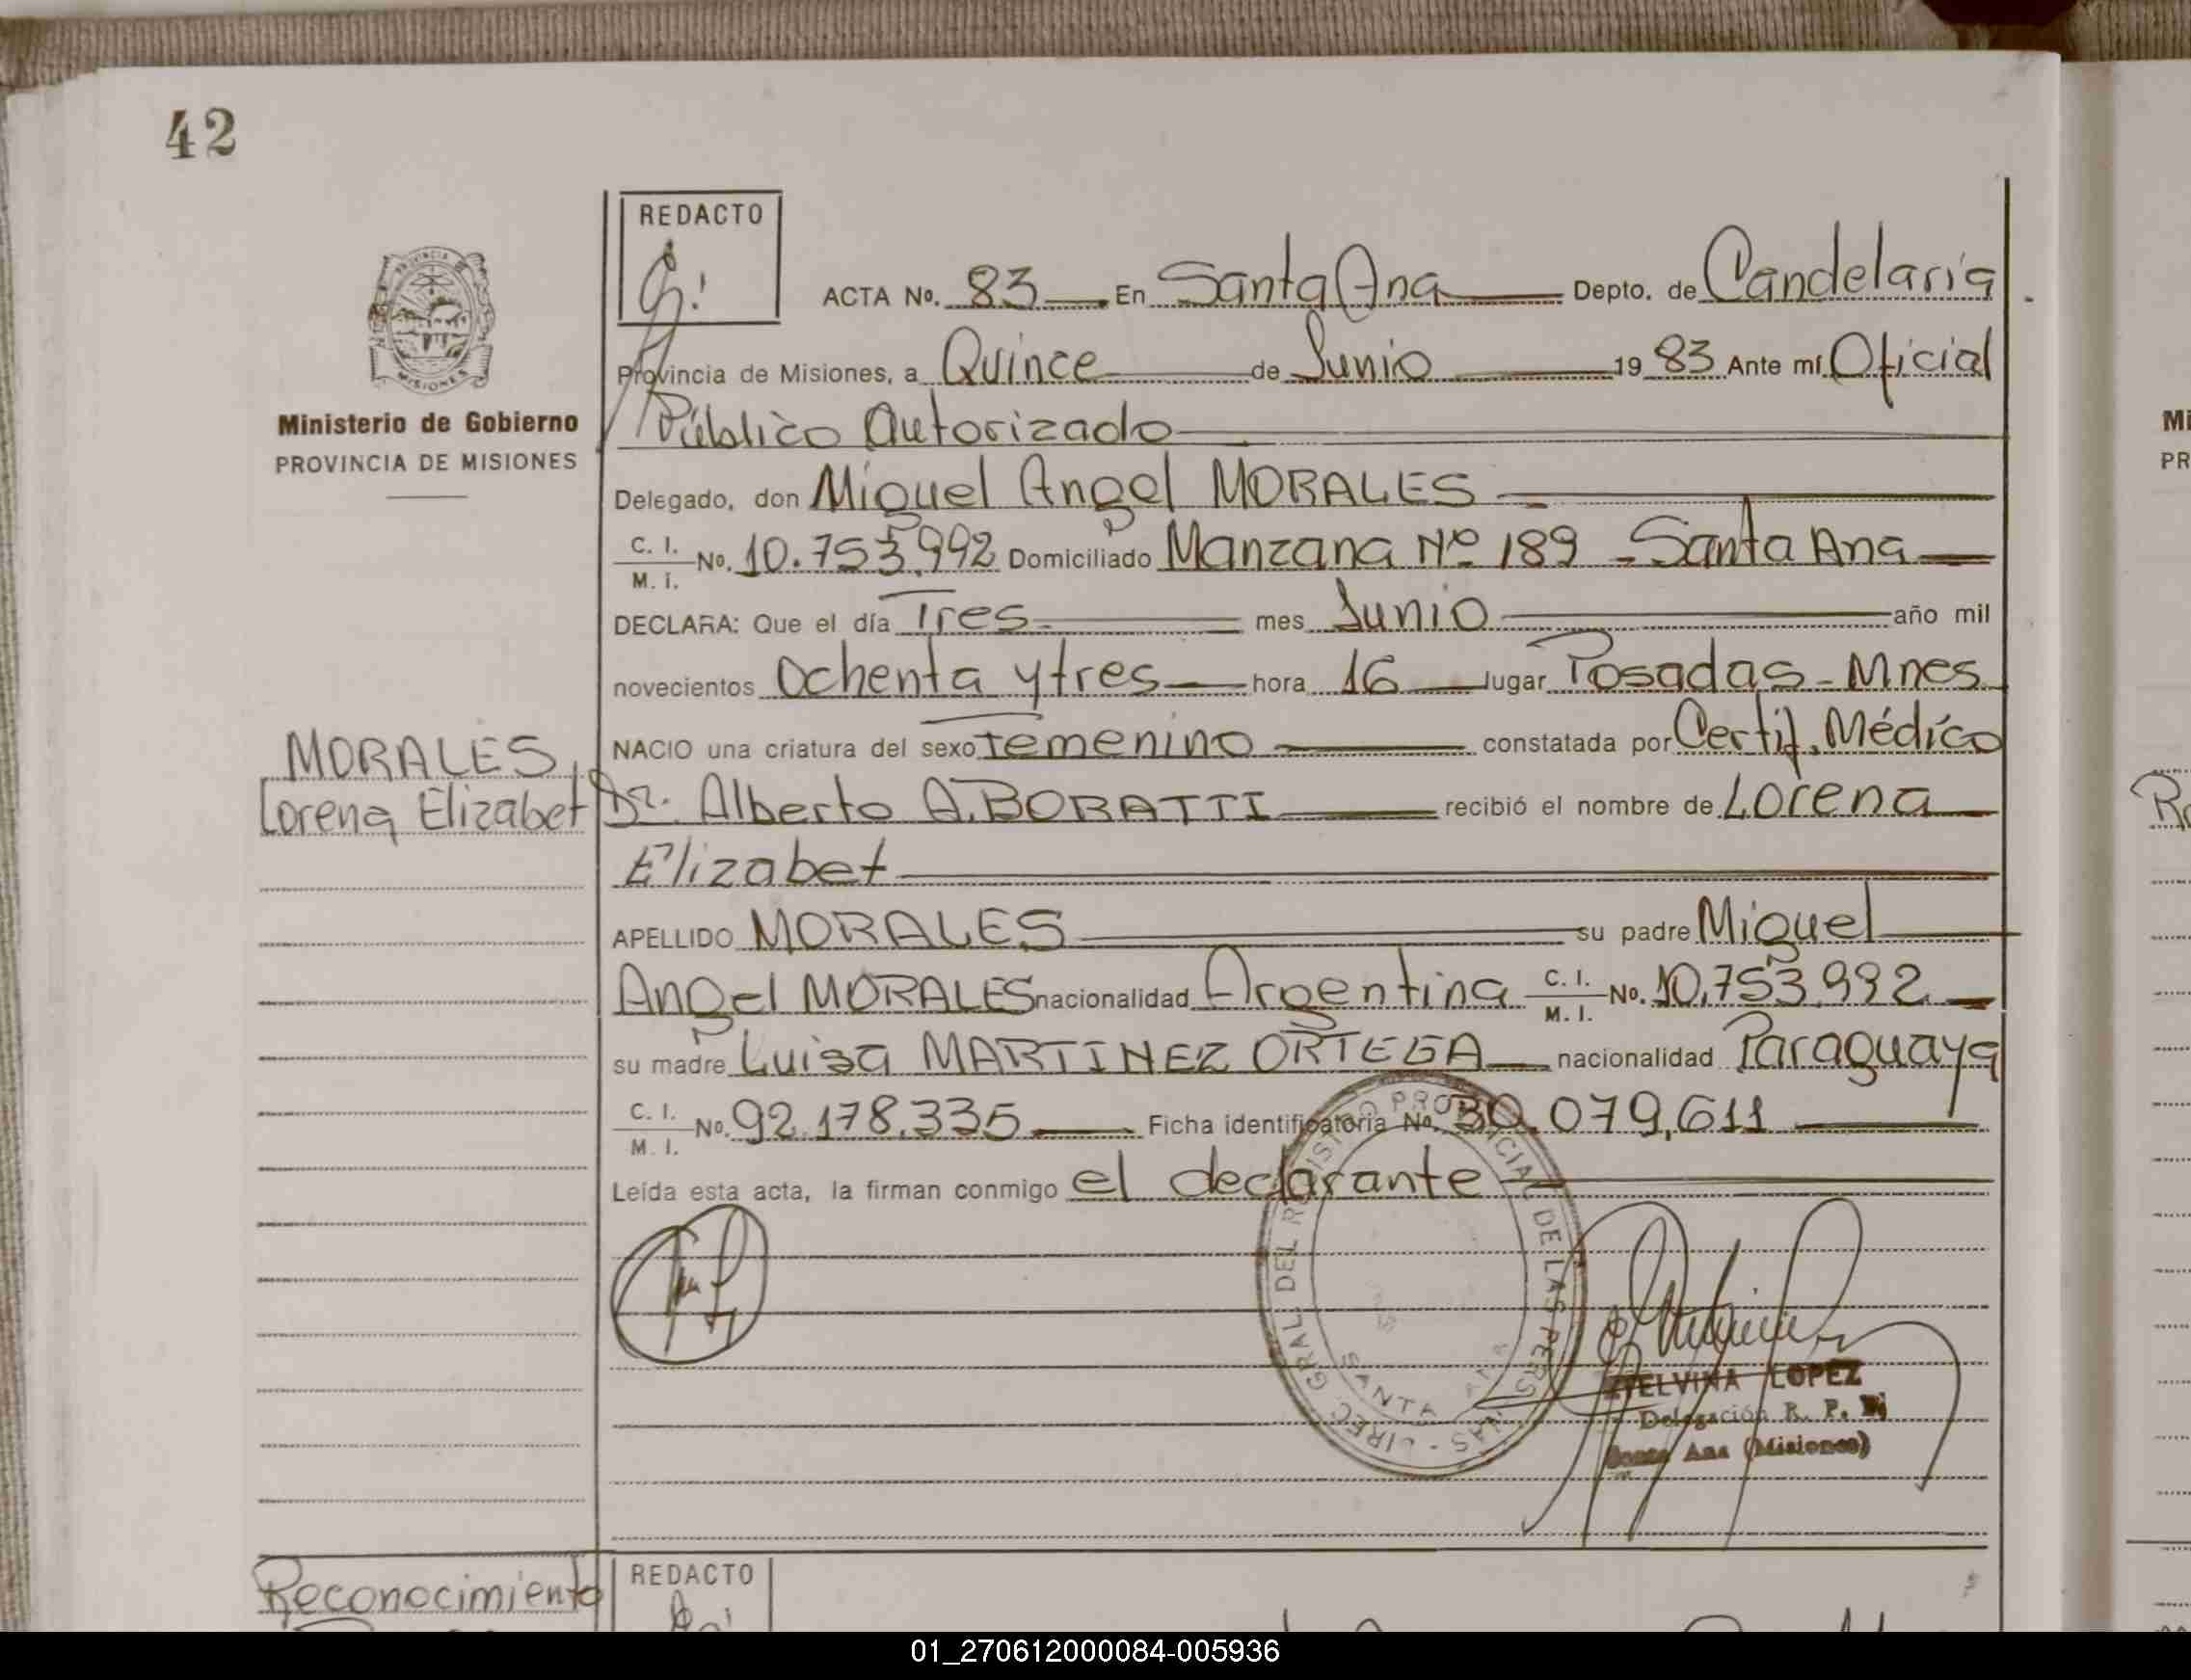 42
REDACTO
ACTA No. 83 En Santa Ana Depto. de Candelaria
Provincia de Misiones, a Quince de Junio 1983 Ante mí Oficial
Público Autorizado
Ministerio de Gobierno
PROVINCIA DE MISIONES
Delegado, don Miguel Angel MORALES
C. I. M. I. No. 10.753,992 Domiciliado Manzana Nº 189 - Santa Ana
DECLARA: Que el día Tres mes Junio año mil
novecientos Ochenta y tres hora 16 lugar Posadas - Mnes
NACIO una criatura del sexo Femenino constatada por Certif. Médico
MORALES,
Lorena Elizabet
Dr. Alberto A. BORATTI recibió el nombre de Lorena
Elizabet
APELLIDO MORALES su padre Miguel
Angel MORALES nacionalidad Argentina C. I. M. I. No. 10,753,992
su madre Luisa MARTINEZ ORTEGA nacionalidad Paraguaya
C. I. M. I. No. 92.178.335 Ficha identificatoria No. 30.079,611
Leída esta acta, la firman conmigo el declarante
GRAL DEL REGISTRO PROVINCIAL DE LAS PERSONAS - DIREC.
SANTA ANA
ETELVINA LOPEZ
Delegación R. P.
Santa Ana (Misiones)
Reconocimiento
REDACTO
01_270612000084-005936